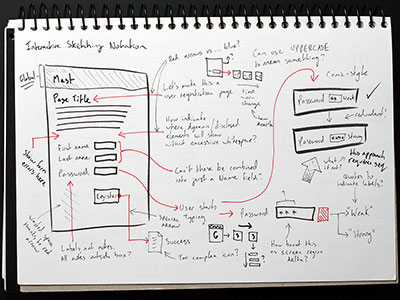 Interactive Sketching Notation
Global
Mast
Page Title
First name
Last name
Password
Register
Show form
errors here
Labels not notes.
All notes outside box?
Red arrows vs... blue?
Let's make this a
user registration page
How indicate
where dynamic/disclosed
elements will show
without excessive whitespace?
Can't these be combined
into just a "Name field"
User starts
Typing
Password
Special
arrow
Success
Too complex icon?
G
S
S
Find
more
change
Can use UPPERCASE
to mean something?
Comic-style
Password
weak
redundant?
Password
strong
this approach
requires seq.
Quotes to
indicate labels?
"Weak"
"Strong"
How bound this
as screen region
delta?